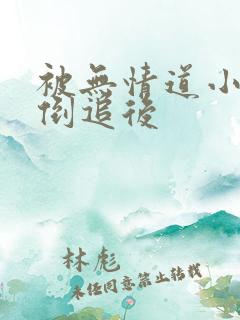 被無情道小
倒追後
林彪
未经同意禁止转载